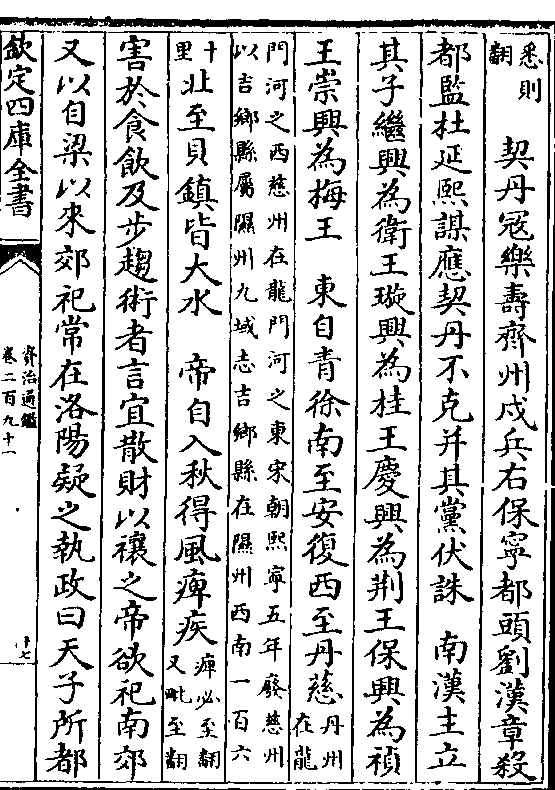 悉則
翻
契丹寇樂壽齊州戍兵右保寧都頭劉漢章殺
都監杜延熙謀應契丹不克并其黨伏誅　南漢主立
其子繼興為衛王璇興為桂王慶興為荆王保興為禎
王崇興為梅王　東自青徐南至安復西至丹慈
丹州
在龍
門河之西慈州在龍門河之東宋朝熙寧五年廢慈州
以吉鄉縣屬隰州九域志吉鄉縣在隰州西南一百六
十
里
北至貝鎮皆大水　帝自入秋得風痺疾
痺必至翻
又毗至翻
害於食飲及步趨術者言宜散財以禳之帝欲祀南郊
又以自梁以來郊祀常在洛陽疑之執政曰天子所都
欽定四庫全書
資治通鑑
卷二百九十一
十七